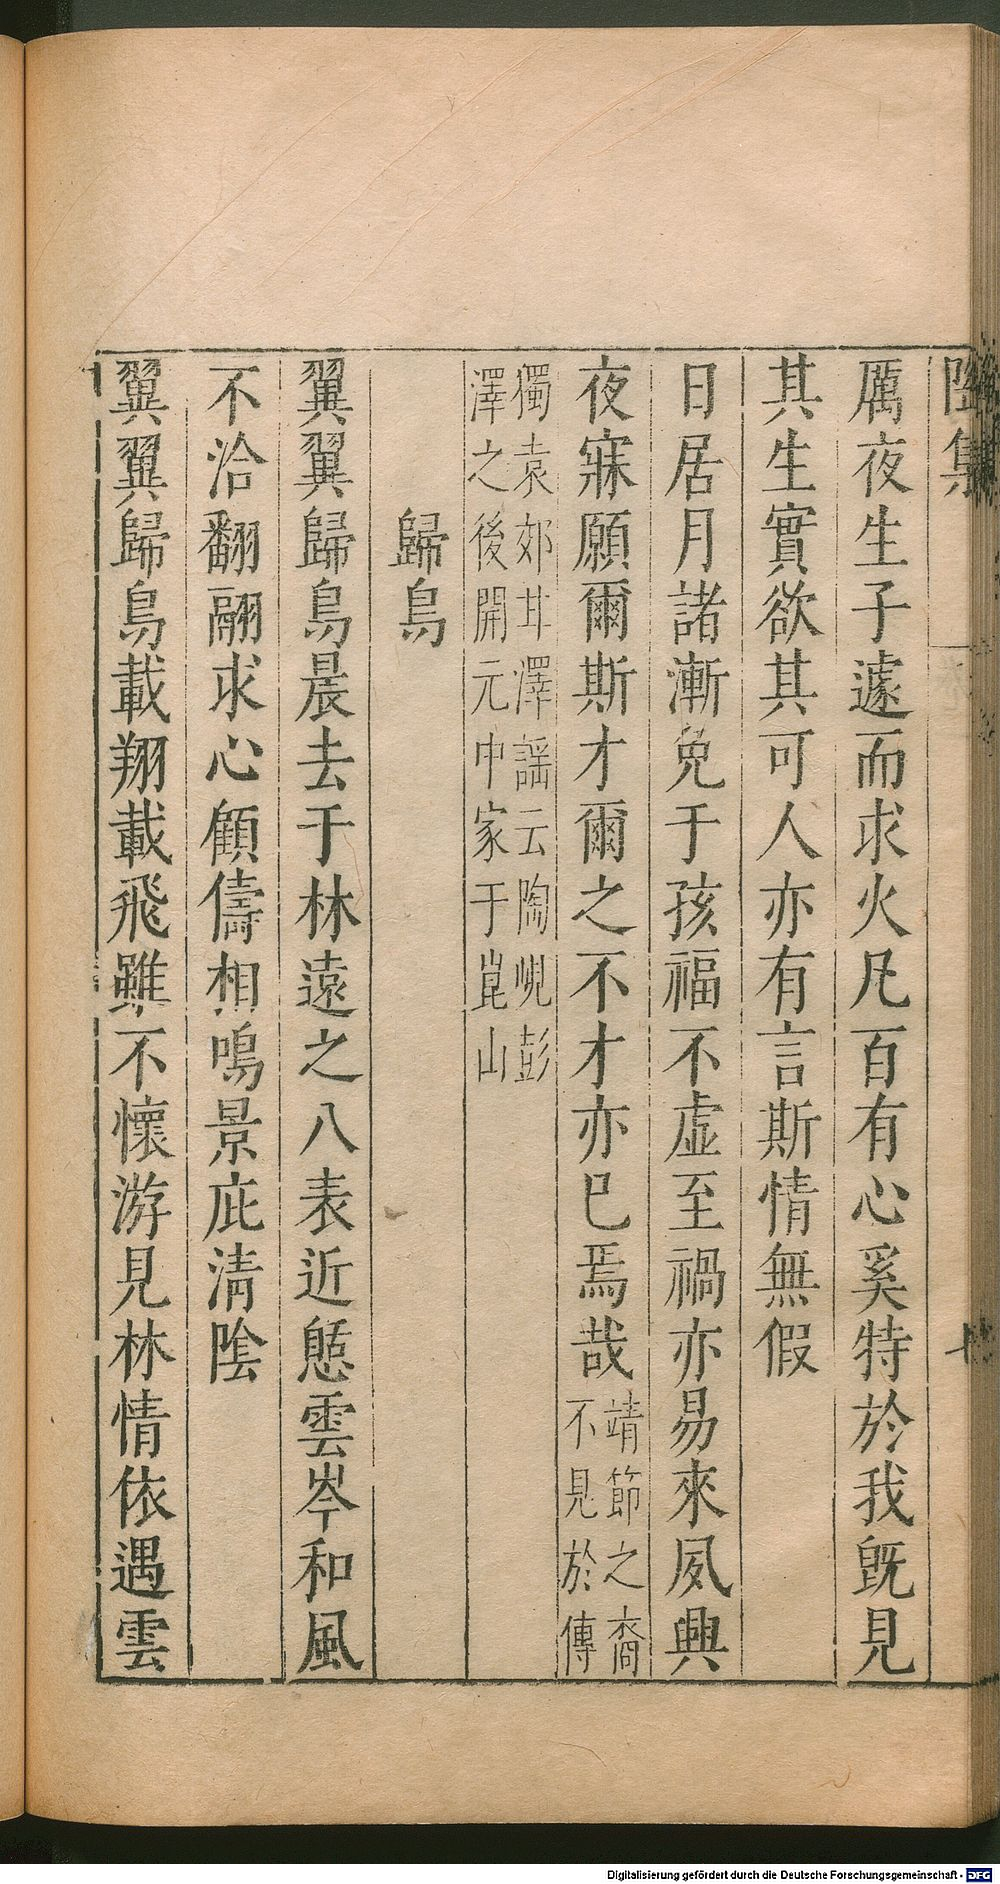 陶集
七
厲夜生子遽而求火凡百有心奚特於我旣見
其生實欲其可人亦有言斯情無假
日居月諸漸免于孩福不虛至禍亦易來夙興
夜寐願爾斯才爾之不才亦已焉哉靖節之裔
不見於傳
獨袁郊甘澤謠云陶峴彭
澤之後開元中家于崑山
歸鳥
翼翼歸鳥晨去于林遠之八表近憇雲岑和風
不洽翻翮求心顧儔相鳴景庇清陰
翼翼歸鳥載翔載飛雖不懷游見林情依遇雲
Digitalisierung gefördert durch die Deutsche Forschungsgemeinschaft - DFG